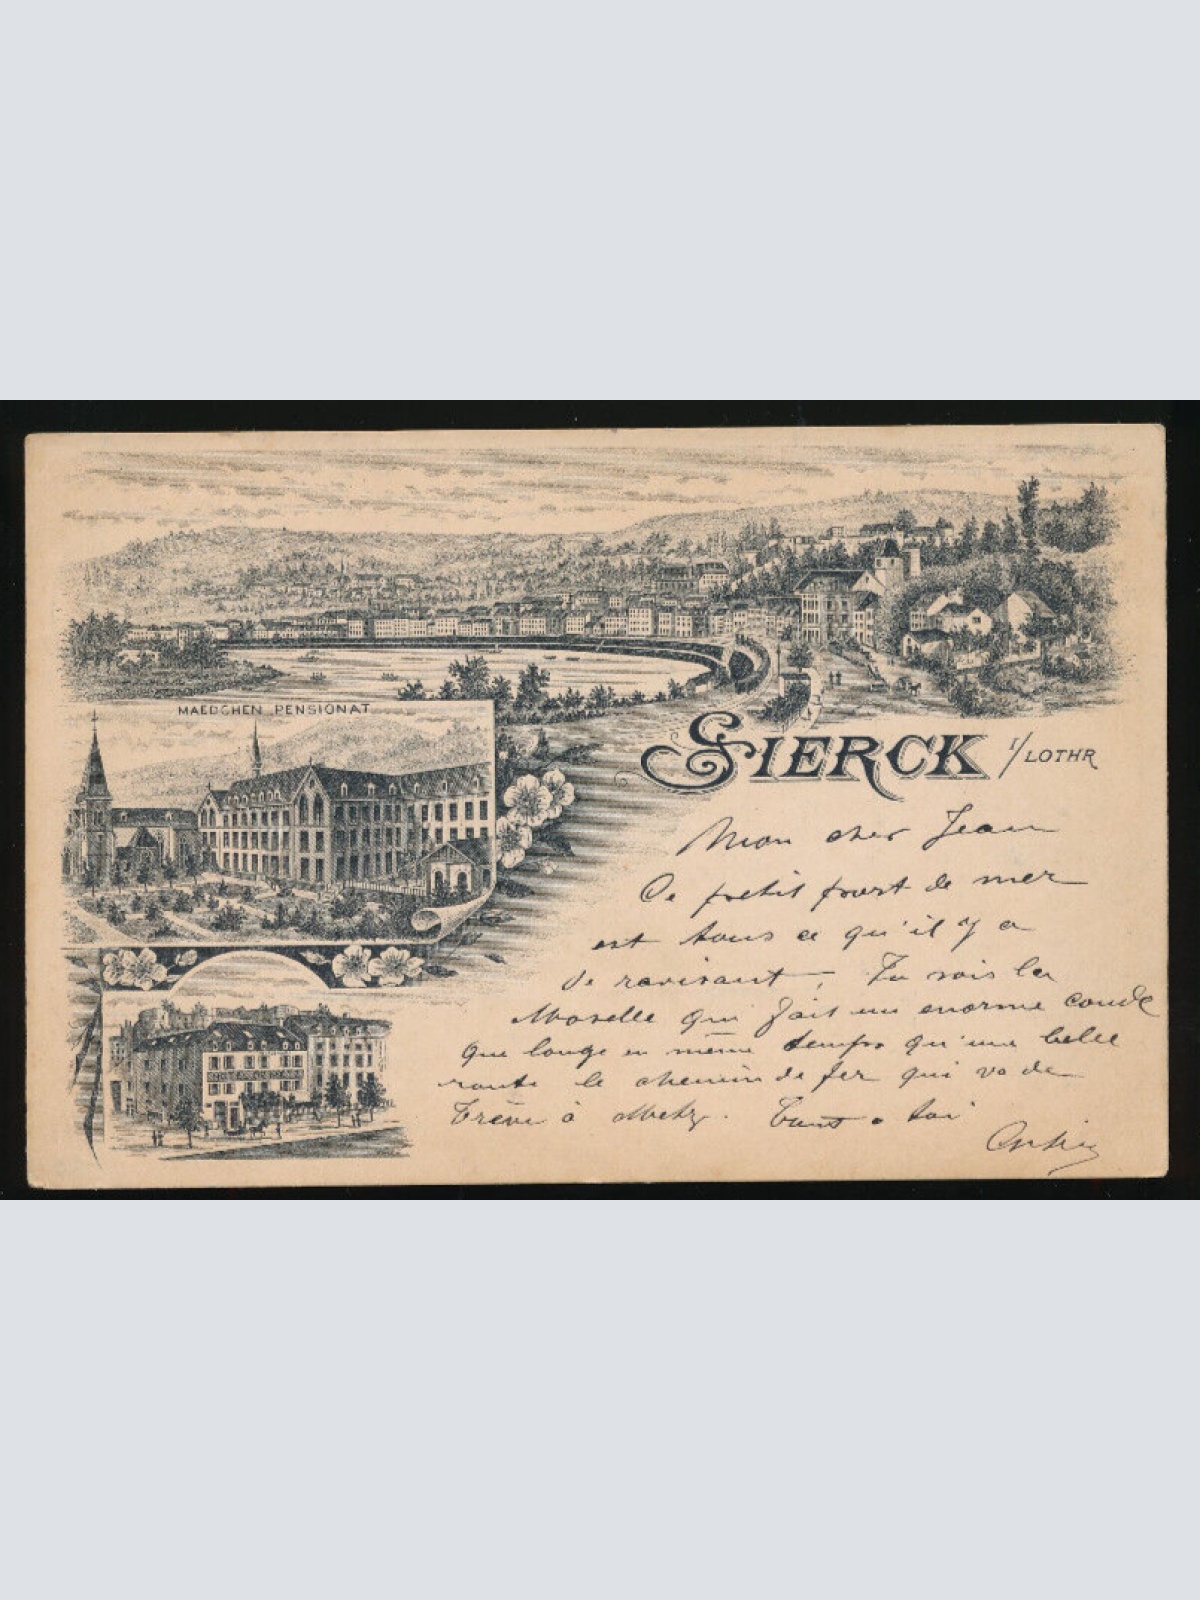 MAEDCHEN PENSIONAT
SIERCK I/LOTHR
Mon cher Jean
Ce petit port de mer
est tous ce qu'il y a
de ravissant, Tu vois la
Moselle qui fait un enorme coude
que longe en même temps qu'une belle
route le chemin de fer qui va de
Trève à Metz. Tout à toi